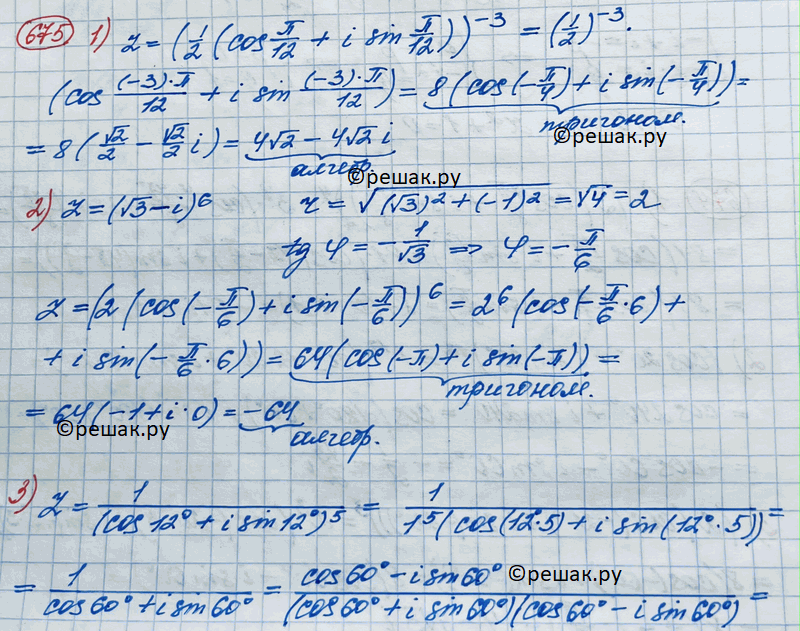 675 1) z = (1/2 (cos π/12 + i sin π/12))^-3 = (1/2)^-3 ·
(cos (-3)·π/12 + i sin (-3)·π/12) = 8(cos(-π/4) + i sin(-π/4)) =
тригоном.
©решак.ру
= 8(√2/2 - √2/2 i) = 4√2 - 4√2 i
алгебр.
©решак.ру
2) z = (√3 - i)^6 r = √((√3)² + (-1)²) = √4 = 2
tg φ = -1/√3 ⇒ φ = -π/6
z = (2(cos(-π/6) + i sin(-π/6))^6 = 2^6 (cos(-π/6 · 6) +
+ i sin(-π/6 · 6)) = 64(cos(-π) + i sin(-π)) =
тригоном.
= 64(-1 + i·0) = -64
©решак.ру
алгебр.
3) z = 1/(cos 12° + i sin 12°)^5 = 1/1^5(cos(12°·5) + i sin(12°·5)) =
= 1/cos 60° + i sin 60° = cos 60° - i sin 60°/(cos 60° + i sin 60°)(cos 60° - i sin 60°) =
©решак.ру